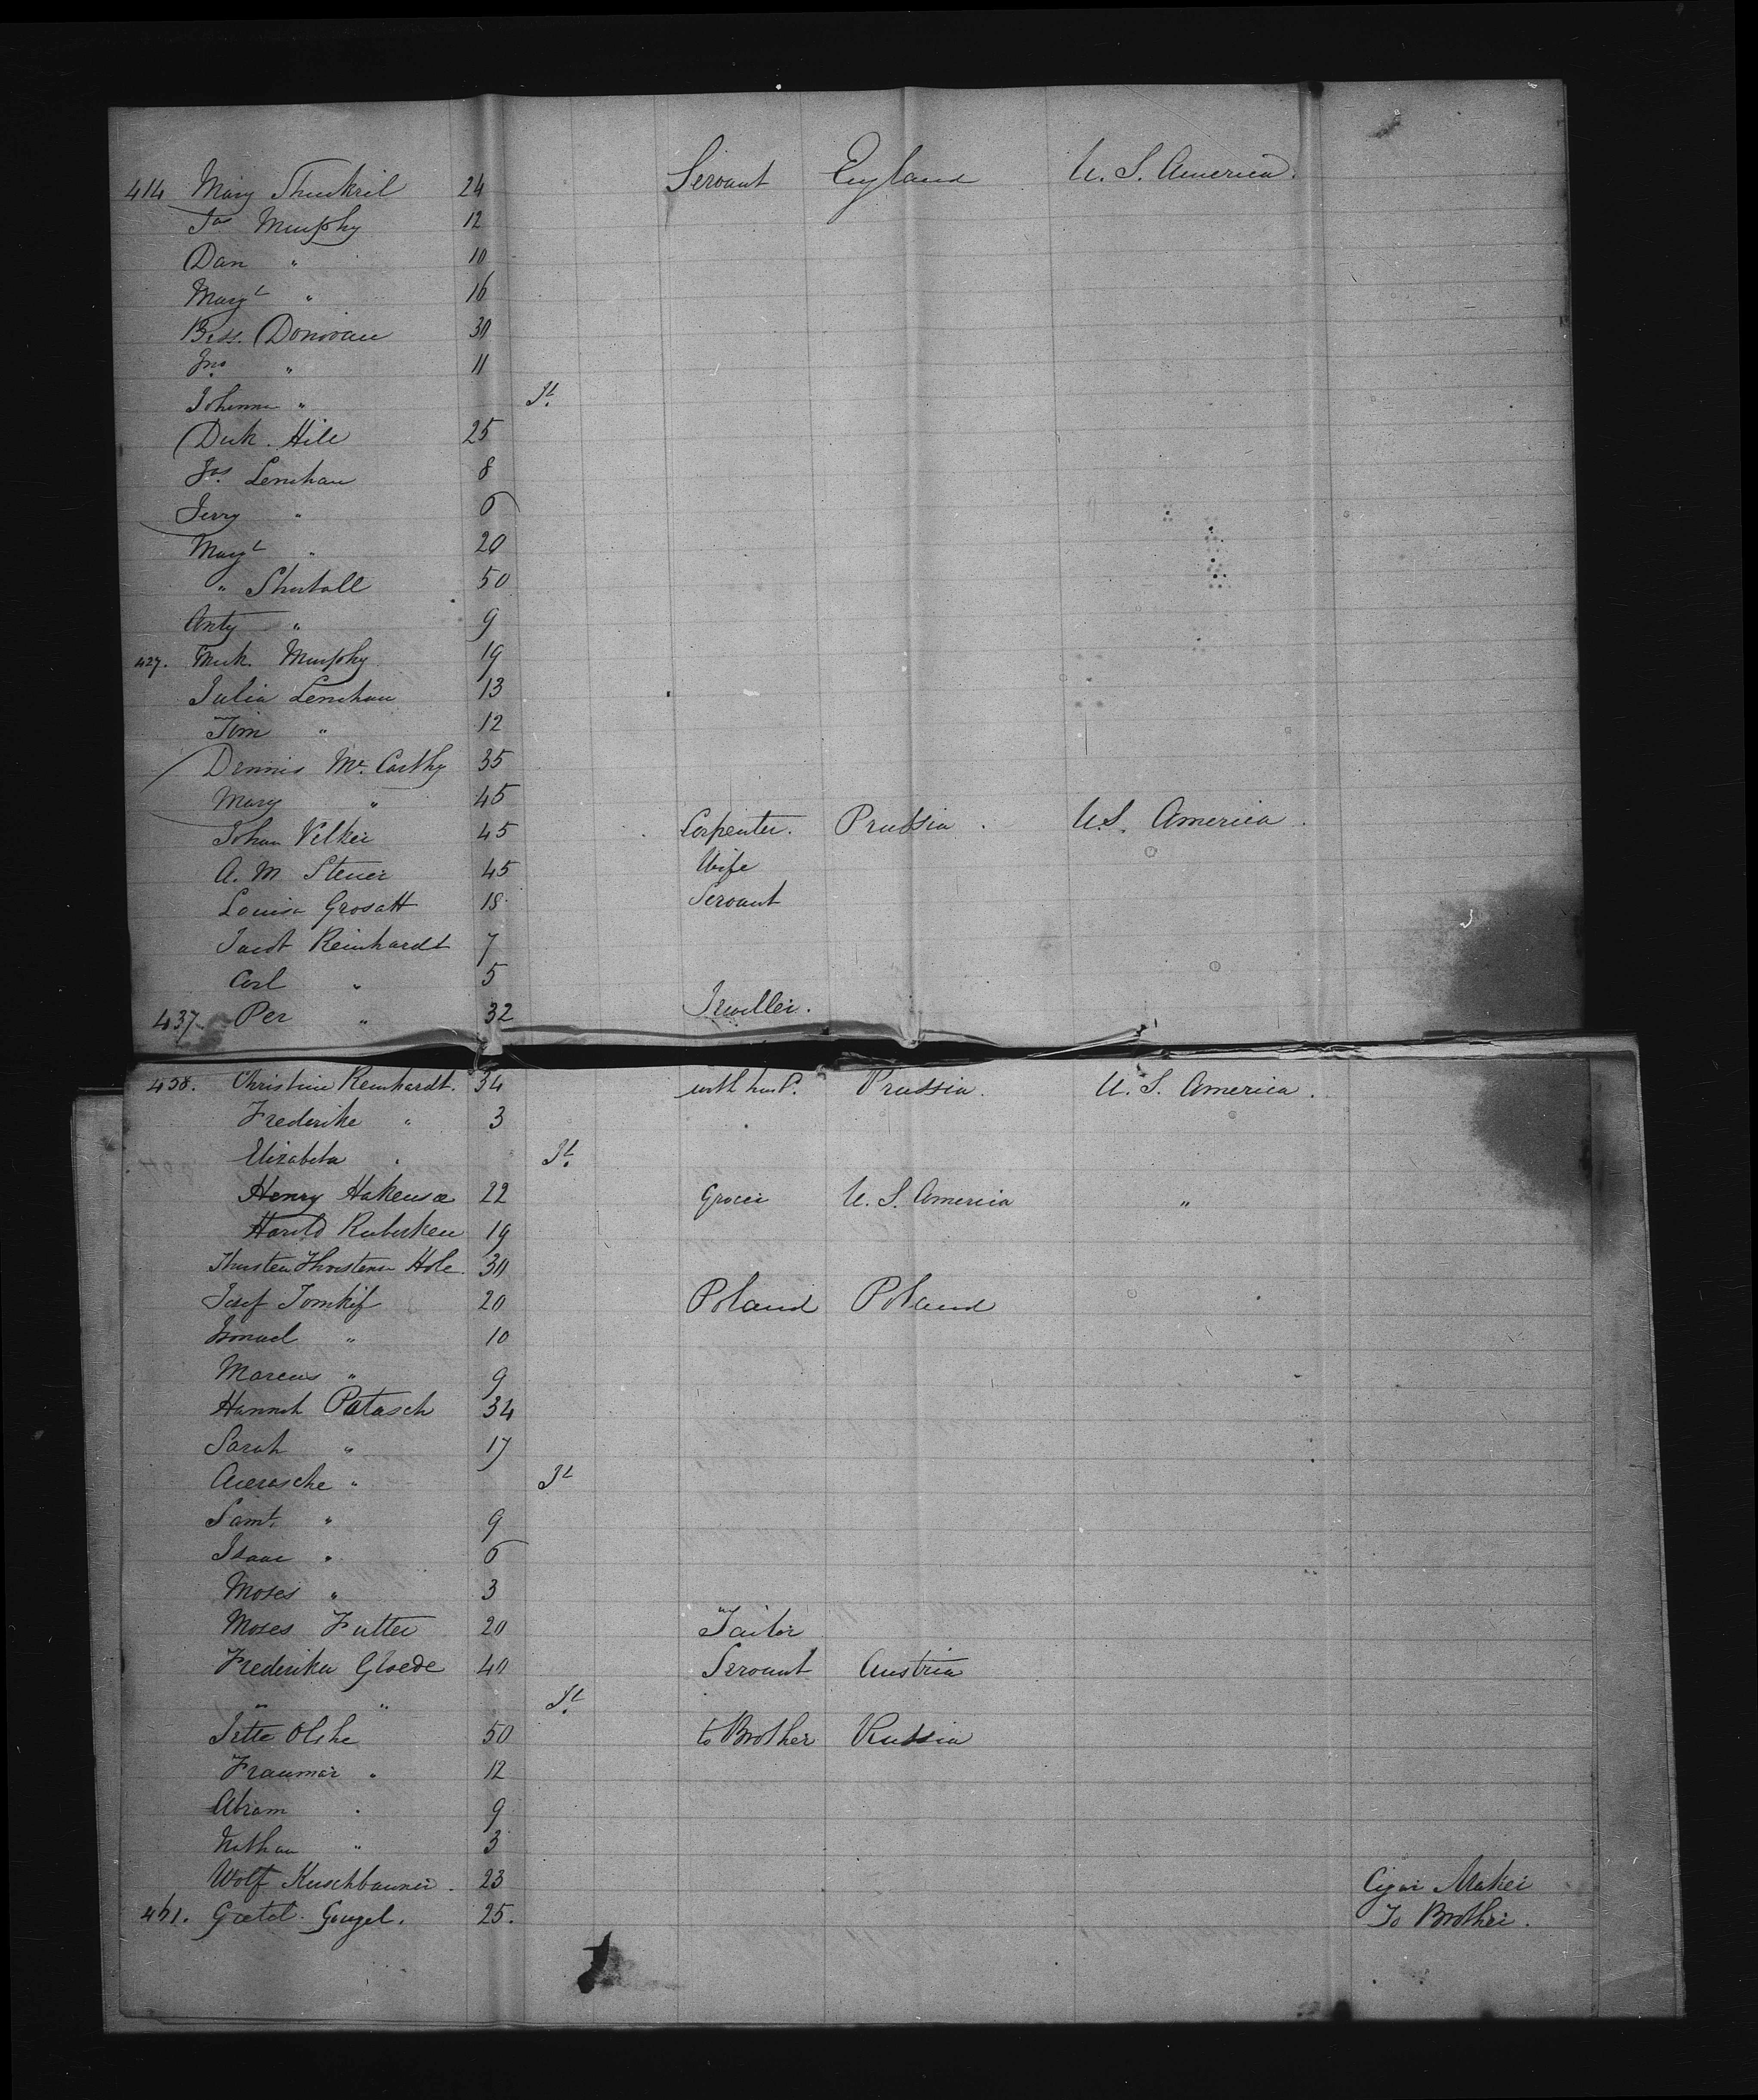 414 Mary 24 Servant England U. S. America.
Jas Murphy 12
Dan " 10
Margt " 16
Bess. Donovan 30
Jno " 11
Johanna "
Hill 25
Jas. Lenehan 8
Jerry " 6
Margt " 20
" 50
Anty " 9
427. Mick. Murphy 19
Julia Lenehan 13
Tim " 12
Dennis Mc. Carthy 35
Mary " 45
Johan Velker 45 Carpenter. Prussia. U.S. America.
A. M Steuer 45 Wife
Louisa Grosatt 18. Servant
Jacob Reinhardt 7
Carl " 5
437. Per " 32 Jeweller.
438. Christine Reinhardt. 34 with husb. Prussia. U. S. America.
Frederike " 3
Elizabeta "
Henry 22 Grocer U. S. America "
Harold 19
Hole 30
Josef Tomkif 20 Poland Poland
" 10
Marcus " 9
Hannah Patasch 34
Sarah " 17
"
Saml. " 9
Isaac " 6
Moses " 3
Moses Futter 20 Tailor
Frederika Gloede 40 Servant Austria
" "
Jette Olshe 50 to Brother Russia
" 12
Abram " 9
Nathan " 3
Wolf 23 Cigar Maker
461. Gengel. 25. To Brother.